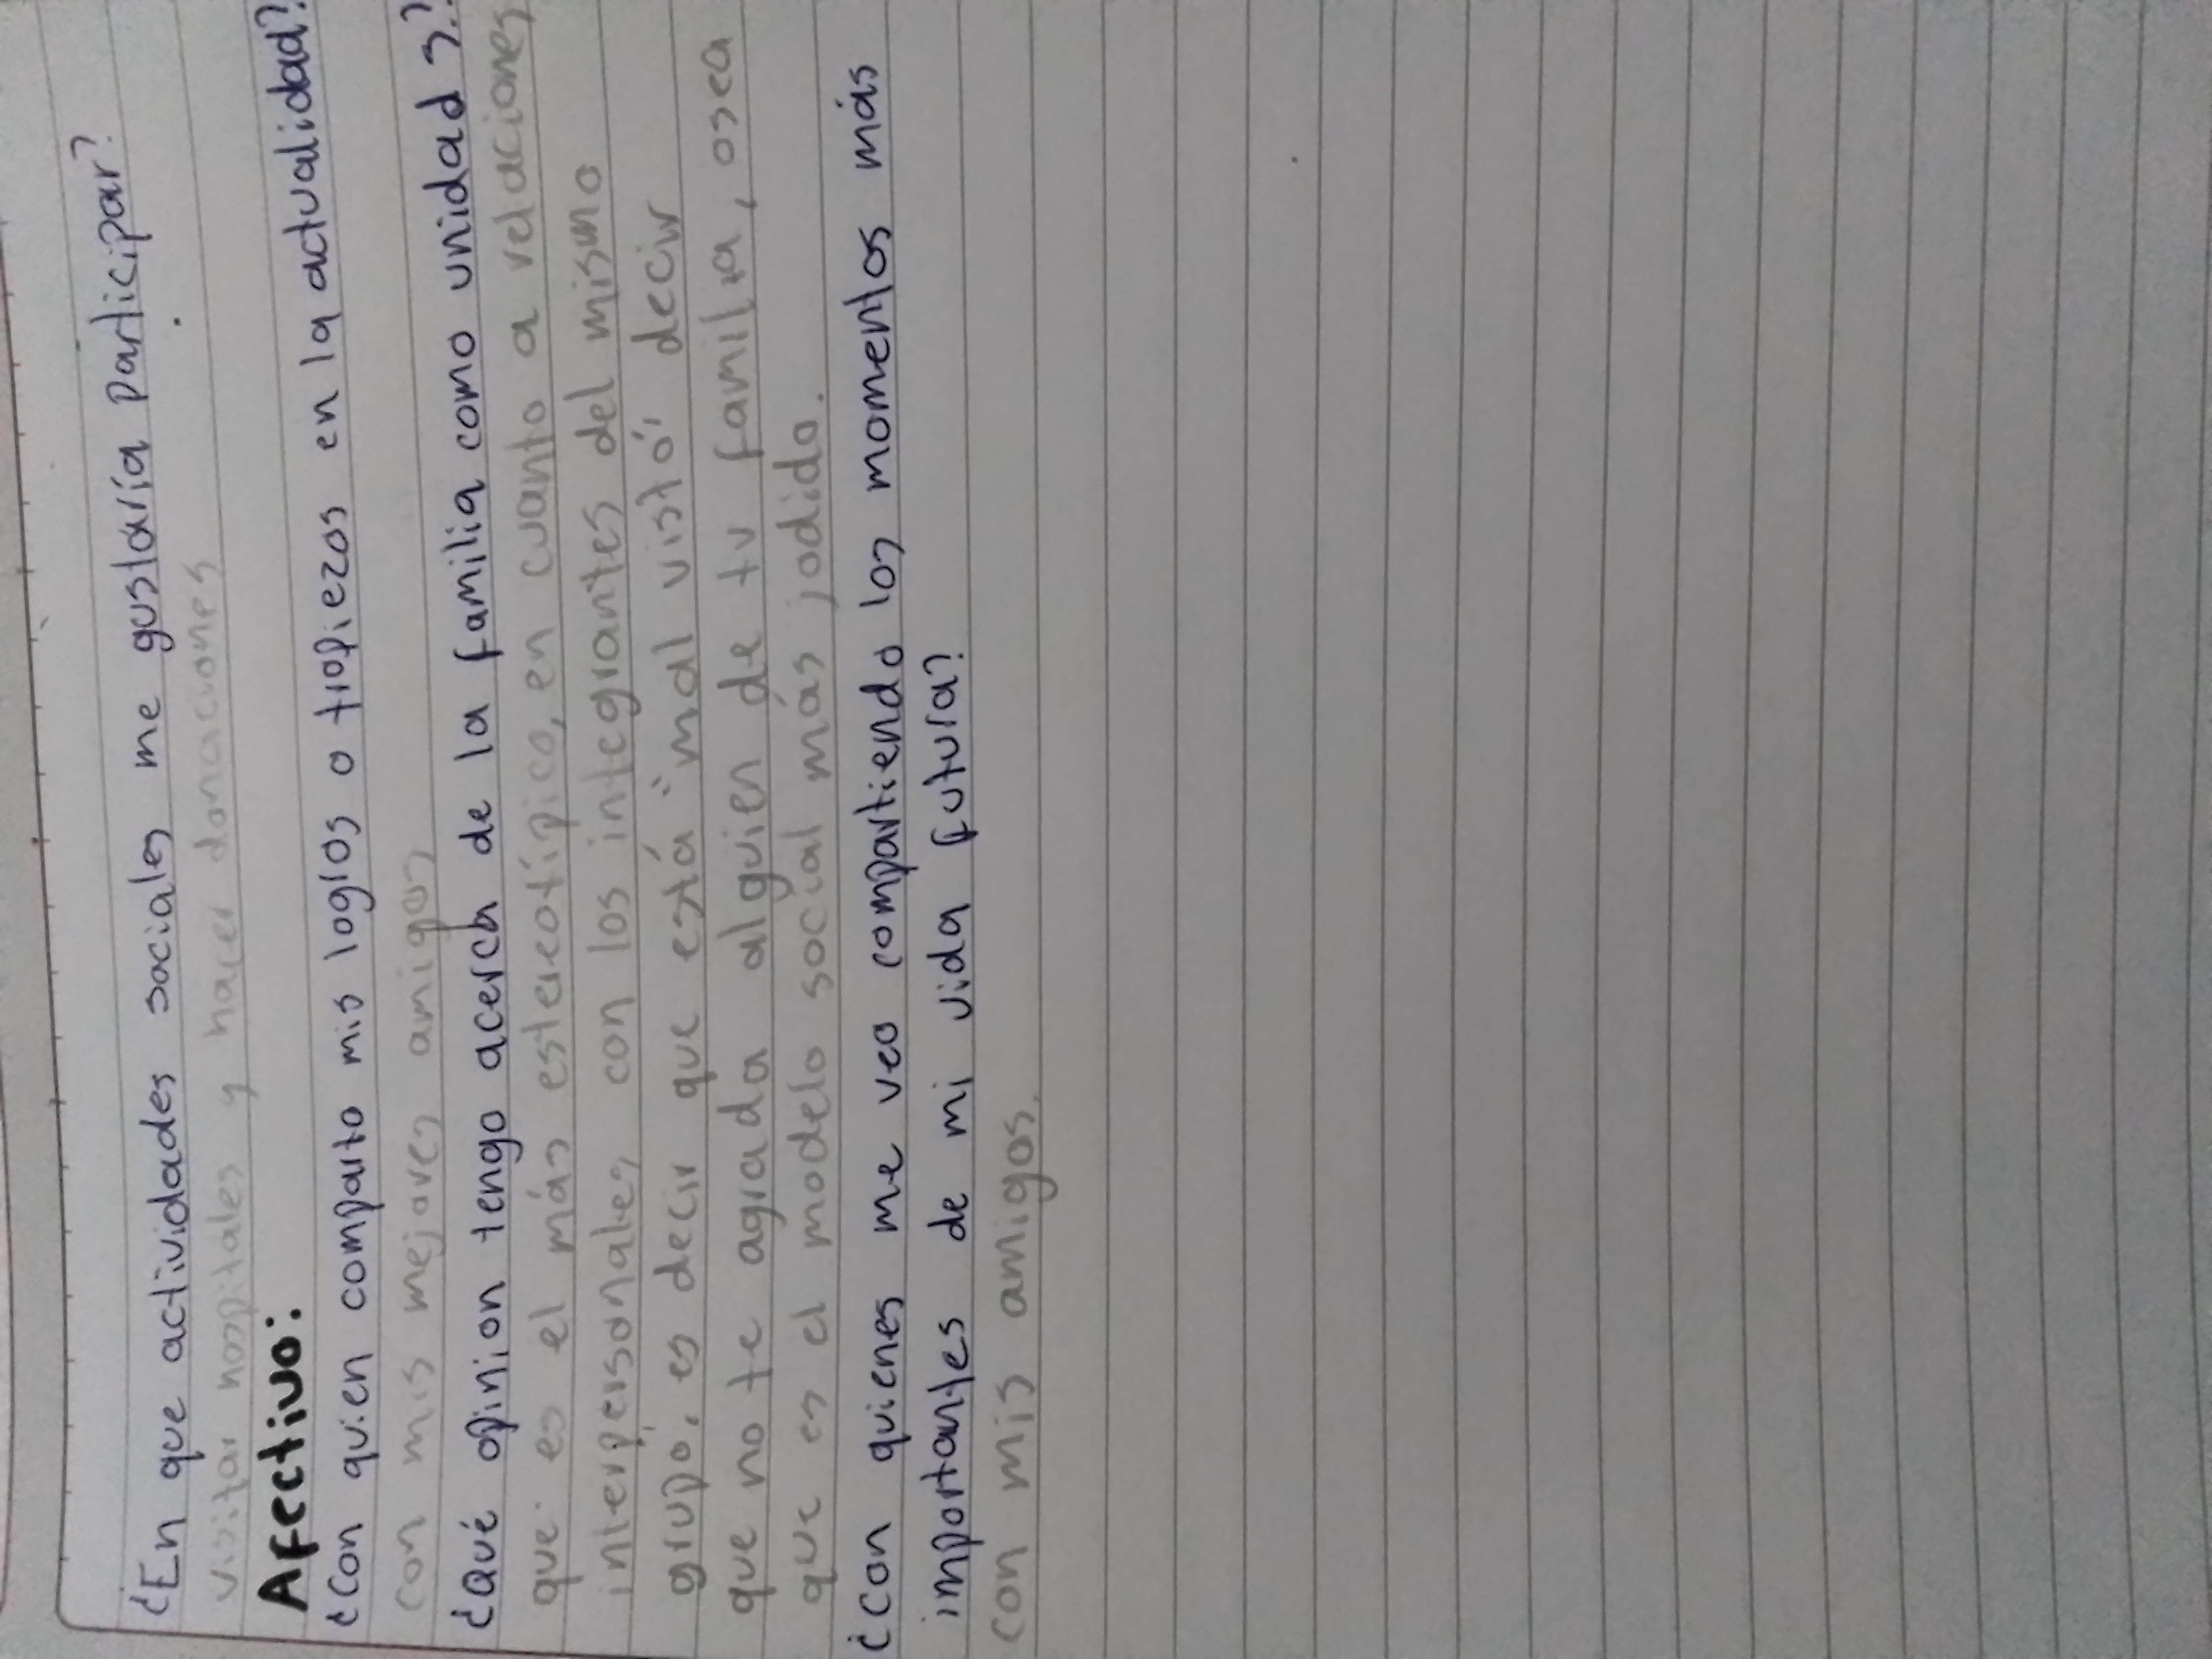 ¿En que actividades sociales me gustaría participar?
visitar hospitales y hacer donaciones
Afectivo:
¿Con quien comparto mis logros o tropiezos en la actualidad?
con mis mejores amigos
¿Qué opinion tengo acerca de la familia como unidad s?
que es el más estereotípico, en cuanto a relaciones
interpersonales con los integrantes del mismo
grupo, es decir que está "mal visto" decir
que no te agrada alguien de tu familia, osea
que es el modelo social más jodido.
¿Con quienes me veo compartiendo los momentos más
importantes de mi vida futura?
con mis amigos.